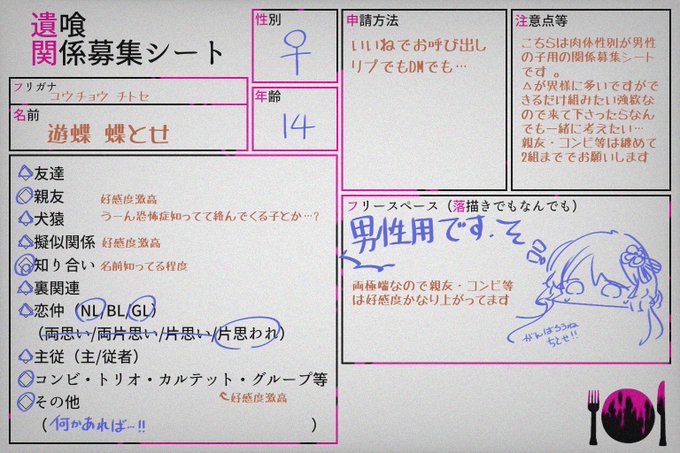 遺喰
関係募集シート
フリガナ
ユウチョウ チトセ
名前
遊蝶 蝶とせ
性別
♀
年齢
14
申請方法
いいねでお呼び出し
リプでもDMでも…
注意点等
こちらは肉体性別が男性
の子用の関係募集シート
です 。
△が異様に多いですがで
きるだけ組みたい強欲な
ので来て下さったらなん
でも一緒に考えたい…
親友・コンビ等は纏めて
2組まででお願いします
△友達
○親友 好感度激高
△犬猿 うーん恐怖症知ってて絡んでくる子とか…?
△擬似関係 好感度激高
◎知り合い 名前知ってる程度
△裏関連
△恋仲（NL/BL/GL）
（両思い/両片思い/片思い/片思われ）
△主従（主/従者）
○コンビ・トリオ・カルテット・グループ等
○その他 好感度激高
（何かあれば…!!）
フリースペース（落描きでもなんでも）
男性用です.そ
両極端なので親友・コンビ等
は好感度かなり上がってます
がんばろうね
ちとせ!!